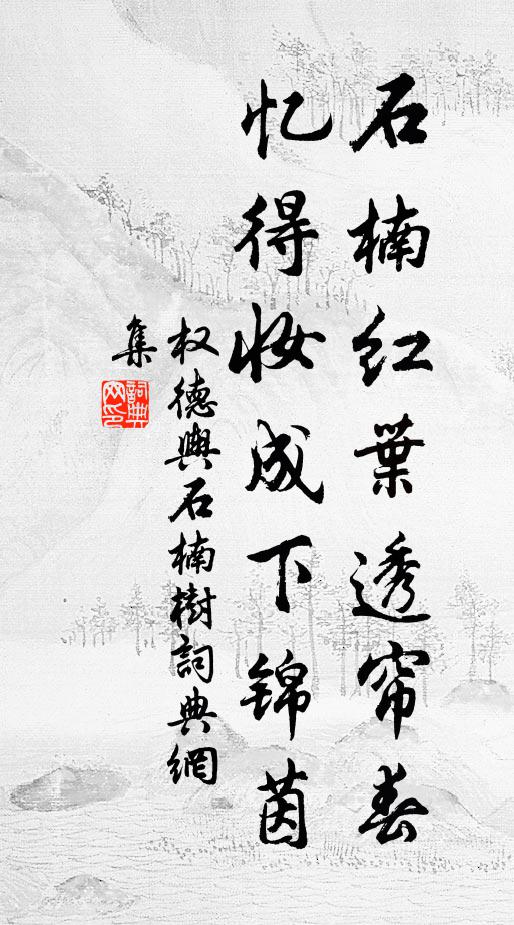 石楠红葉透帘春
忆得妆成下锦茵
权德舆石楠樹詞典網
集
詞典网印